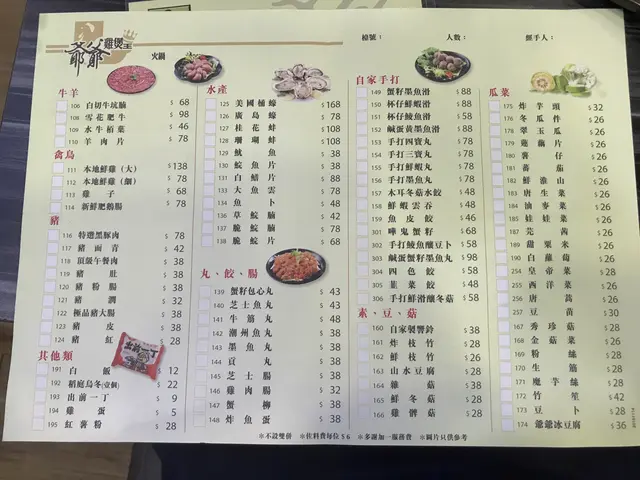 爺爺雞煲王
火鍋
檯號：
人數：
經手人：
牛羊
106 自切牛坑腩 $ 68
108 雪花肥牛 $ 98
109 水牛栢葉 $ 46
110 羊肉片 $ 78
禽鳥
111 本地鮮雞（大） $138
112 本地鮮雞（細） $ 78
113 雞子 $ 68
114 新鮮肥鵝腸 $ 78
豬
116 特選黑豚肉 $ 78
117 豬面青 $ 42
118 頂蛋午餐肉 $ 38
119 豬肚 $ 38
120 豬粉腸 $ 38
121 豬潤 $ 32
122 極品豬大腸 $ 38
123 豬皮 $ 38
124 豬紅 $ 28
其他類
191 白飯 $ 12
192 稻庭烏冬(壹個) $ 22
193 出前一丁 $ 9
194 雞蛋 $ 5
195 紅薯粉 $ 28
水產
125 美國桶蠔 $168
126 廣島蠔 $ 78
127 桂花蚌 $108
128 珊瑚蚌 $108
129 魷魚 $ 38
130 鯇魚片 $ 38
131 白鱔片 $ 88
133 大魚雲 $ 78
134 魚卜 $ 48
136 草鯇腩 $ 42
137 脆鯇腩 $ 78
138 脆鯇片 $ 68
丸、餃、腸
139 蟹籽包心丸 $ 43
140 芝士魚丸 $ 43
141 牛筋丸 $ 48
142 潮州魚丸 $ 38
143 墨魚丸 $ 38
144 貢丸 $ 38
145 芝士腸 $ 38
146 雞肉腸 $ 32
147 蟹柳 $ 38
148 炸魚蛋 $ 38
自家手打
149 蟹籽墨魚滑 $ 88
150 杯仔鮮蝦滑 $ 88
151 杯仔鯪魚滑 $ 58
152 鹹蛋黃墨魚滑 $ 88
153 手打四寶丸 $ 78
154 手打三寶丸 $ 78
155 手打鮮蝦丸 $ 78
156 手打墨魚丸 $ 78
157 木耳冬菇水餃 $ 48
158 鮮蝦雲吞 $ 48
159 魚皮餃 $ 46
301 嘩鬼蟹籽 $ 68
302 手打鯪魚釀豆卜 $ 58
303 鹹蛋蟹籽黑魚丸 $ 98
304 四色餃 $ 58
305 韮菜餃 $ 48
306 手打鮮滑釀冬菇 $ 58
素、豆、菇
160 自家製響鈴 $ 38
161 炸枝竹 $ 28
162 鮮枝竹 $ 26
163 山水豆腐 $ 28
164 雜菇 $ 38
165 鮮冬菇 $ 28
166 雞髀菇 $ 28
瓜菜
175 炸芋頭 $ 32
176 冬瓜件 $ 26
178 翠玉瓜 $ 26
179 蓮藕片 $ 26
180 薯仔 $ 26
181 蕃茄 $ 26
182 鮮淮山 $ 26
183 唐生菜 $ 26
184 油麥菜 $ 26
185 娃娃菜 $ 26
187 芫茜 $ 26
189 甜粟米 $ 26
190 白蘿蔔 $ 26
254 皇帝菜 $ 28
255 西洋菜 $ 26
256 唐蒿 $ 26
257 豆苗 $ 30
167 秀珍菇 $ 28
168 金菇菜 $ 26
169 粉絲 $ 28
170 生筋 $ 28
171 魔芋絲 $ 28
172 竹笙 $ 42
173 豆卜 $ 28
174 爺爺冰豆腐 $ 36
＊不設雙併 ＊佐料費每位 $ 6 ＊多謝加一服務費 ＊圖片只供參考